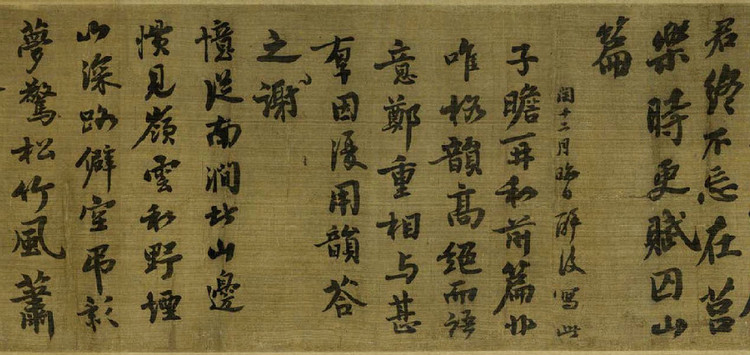 君終不忘在莒
樂時更賦囚山
篇
閏十二月晦日醉後寫此
子瞻再和前篇非
唯格韻高絕而語
意鄭重相與甚
厚因復用韻答
之謝
憶從南澗北山邊
慣見嶺雲和野煙
山深路僻空弔影
夢驚松竹風蕭